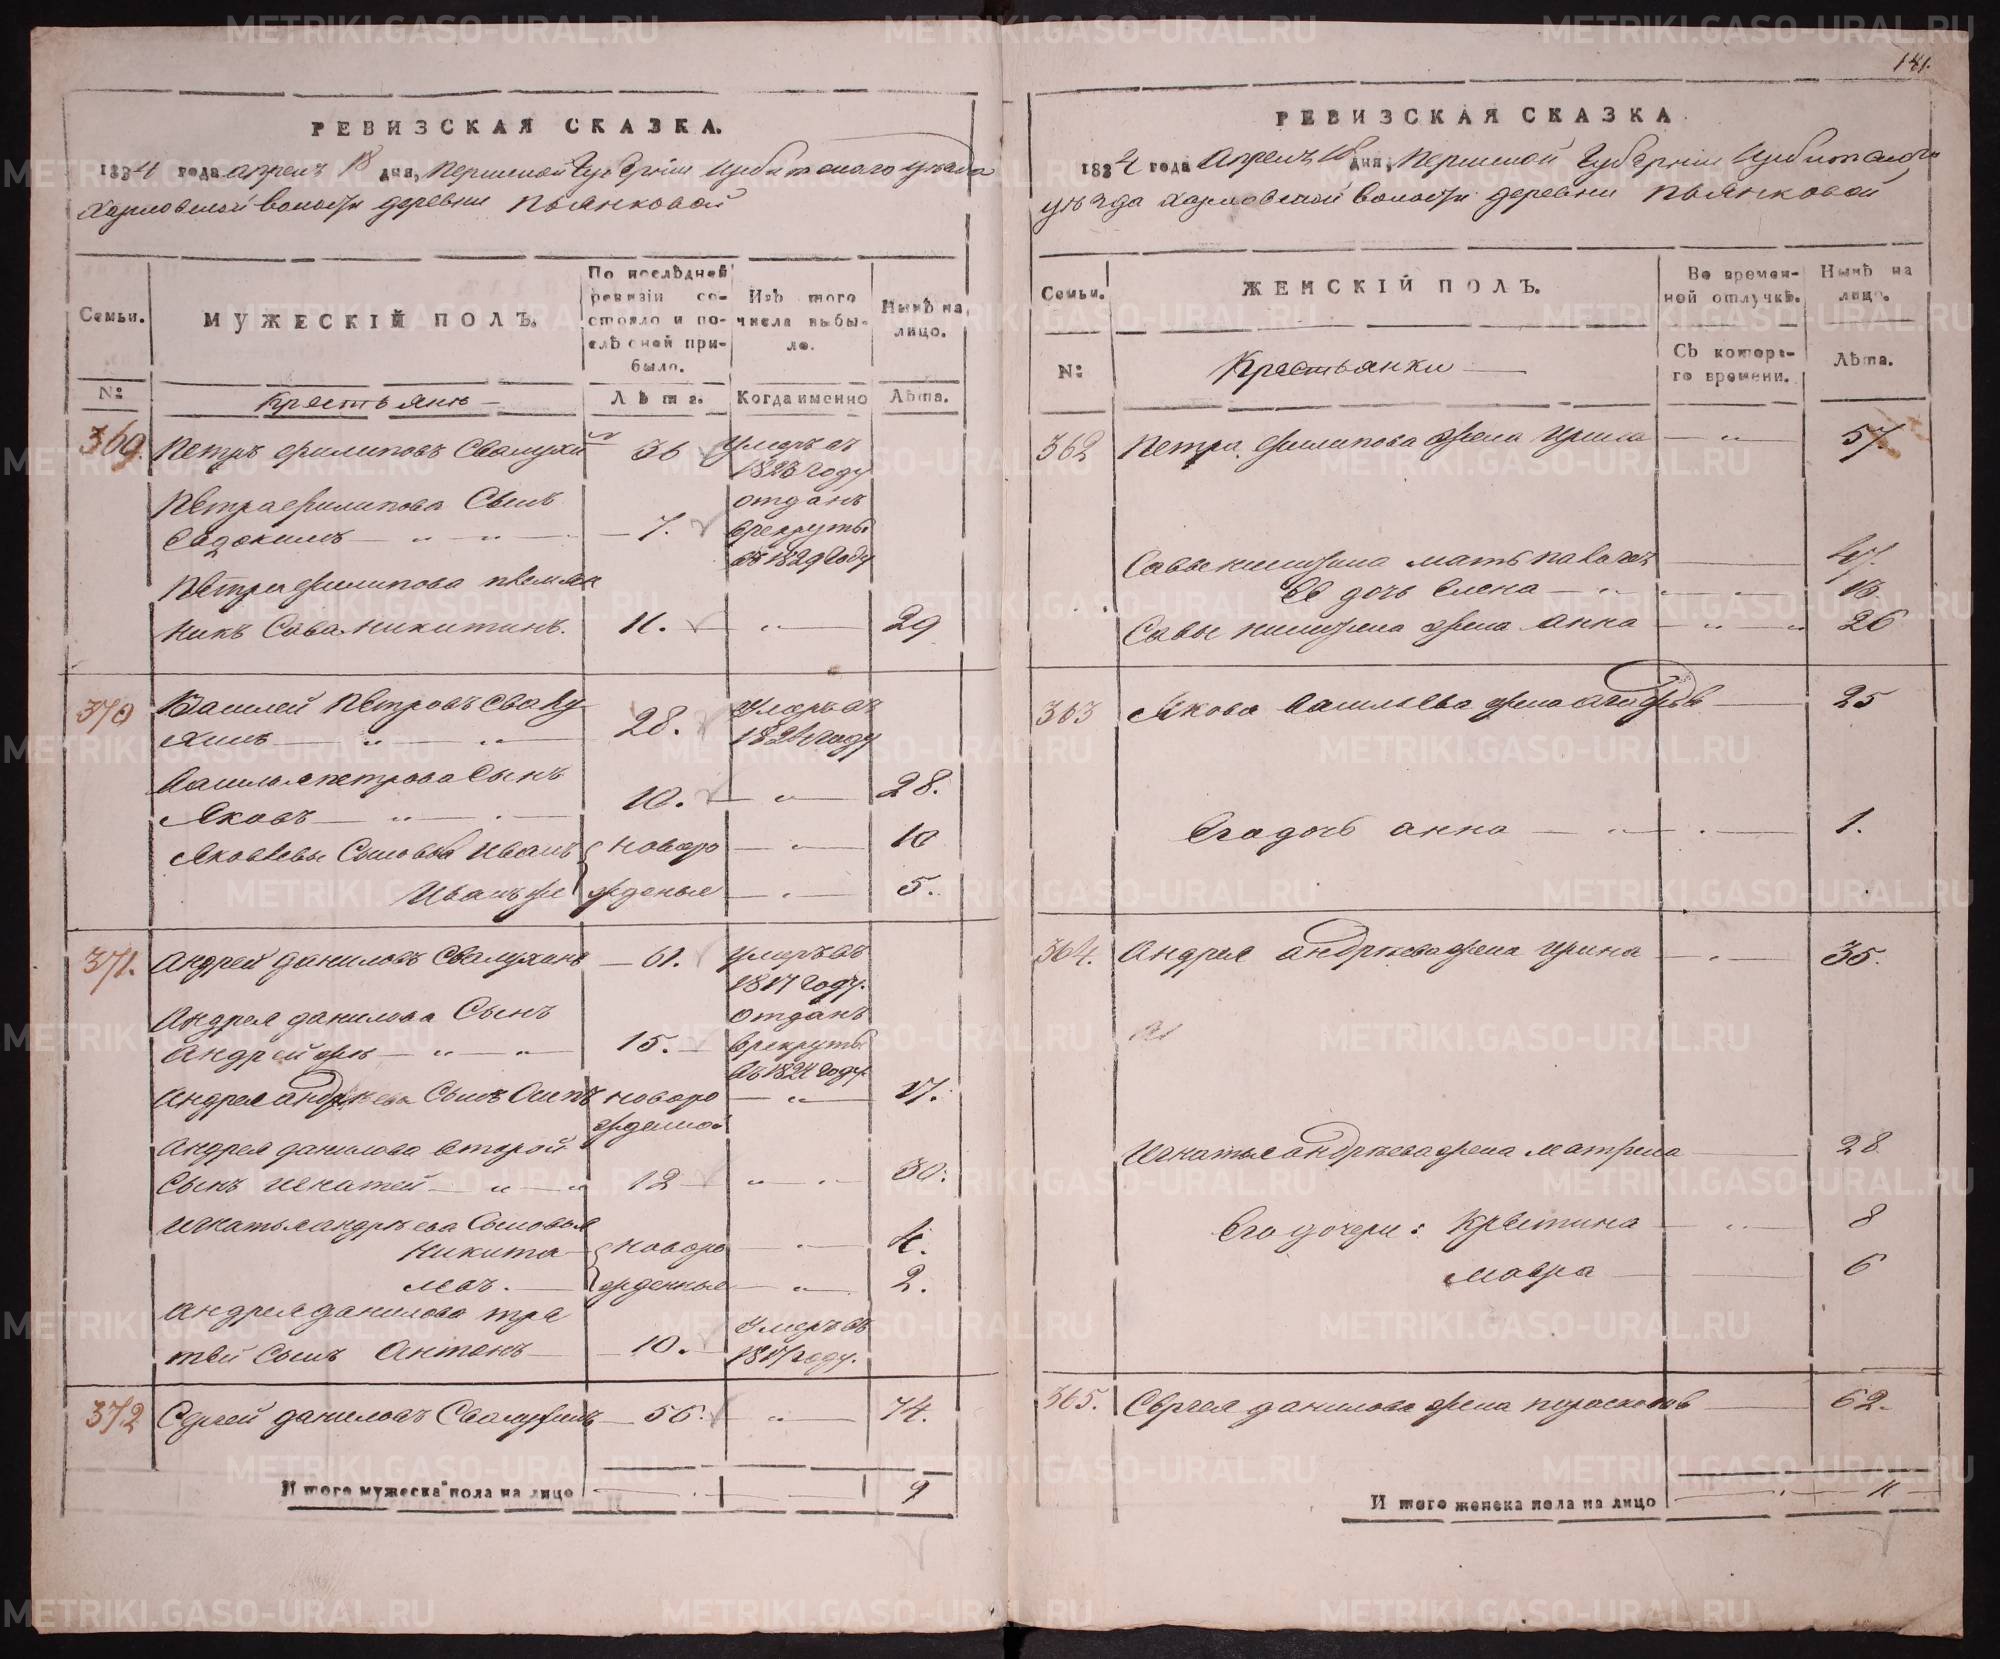 РЕВИЗСКАЯ СКАЗКА.
1834 года апреля 18 дня, Пермской Губерніи Ирбитского уѣзда
Харловской волости деревни Пьянковой
Семьи.
МУЖЕСКІЙ ПОЛЪ.
По послѣдней ревизіи состояло и послѣ оной прибыло.
Изъ того числа выбыло.
Нынѣ на лицо.
№
Крестьяне
Лѣта.
Когда именно
Лѣта.
369. Петръ Филиповъ Свалухи 36 Умеръ въ
1828 году
Петра Филипова Сынъ отданъ
Евдокимъ 7. в рекруты
въ 1829 году
Петра Филипова племян
никъ Сава Никитинъ. 11. 29
370 Василей Петровъ Свалу 28. Умеръ въ
хинъ 1824 году
Василья Петрова Сынъ
Яковъ 10. 28.
Яковлевы Сыновья Иванъ новоро 10
Иванъ же жденые 5.
371. Андрей Данилов Свалухинъ 61. Умеръ въ
1817 году.
Андрея Данилова Сынъ отданъ
Андрей же 15. в рекруты
въ 1824 году.
Андрея Андрѣева Сынъ Осипъ новоро 17.
жденой
Андрея Данилова второй
Сынъ Игнатей 12 30.
Игнатья Андрѣева Сыновья
Никита новоро 4.
жденные 2.
Андрея Данилова тре Умеръ въ
тей Сынъ Антонъ 10. 1817 году.
372 Сергей Данилов Свалухинъ 56. 74.
И того мужеска пола на лицо 9
181.
РЕВИЗСКАЯ СКАЗКА
1834 года Апреля 18 дня, Пермской Губерніи Ирбитского
уѣзда Харловской волости деревни Пьянковой
Семьи.
ЖЕНСКІЙ ПОЛЪ.
Во временной отлучкѣ.
Нынѣ на лицо.
№
Крестьянки
Съ котораго времени.
Лѣта.
362 Петра Филипова жена Ирина 57.
Савы Никитина мать
Ее дочь Елена
Савы Никитина жена Анна 26
363 Якова Васильева жена 25
Его дочь Анна 1.
364. Андрея Андрѣева жена Ирина 35.
Игнатья Андрѣева жена Матрена 28
Его дочери: Крестина 8
Мавра 6
365. Сергея Данилова жена Парасковья 62.
И того женска пола на лицо 11
METRIKI.GASO-URAL.RU